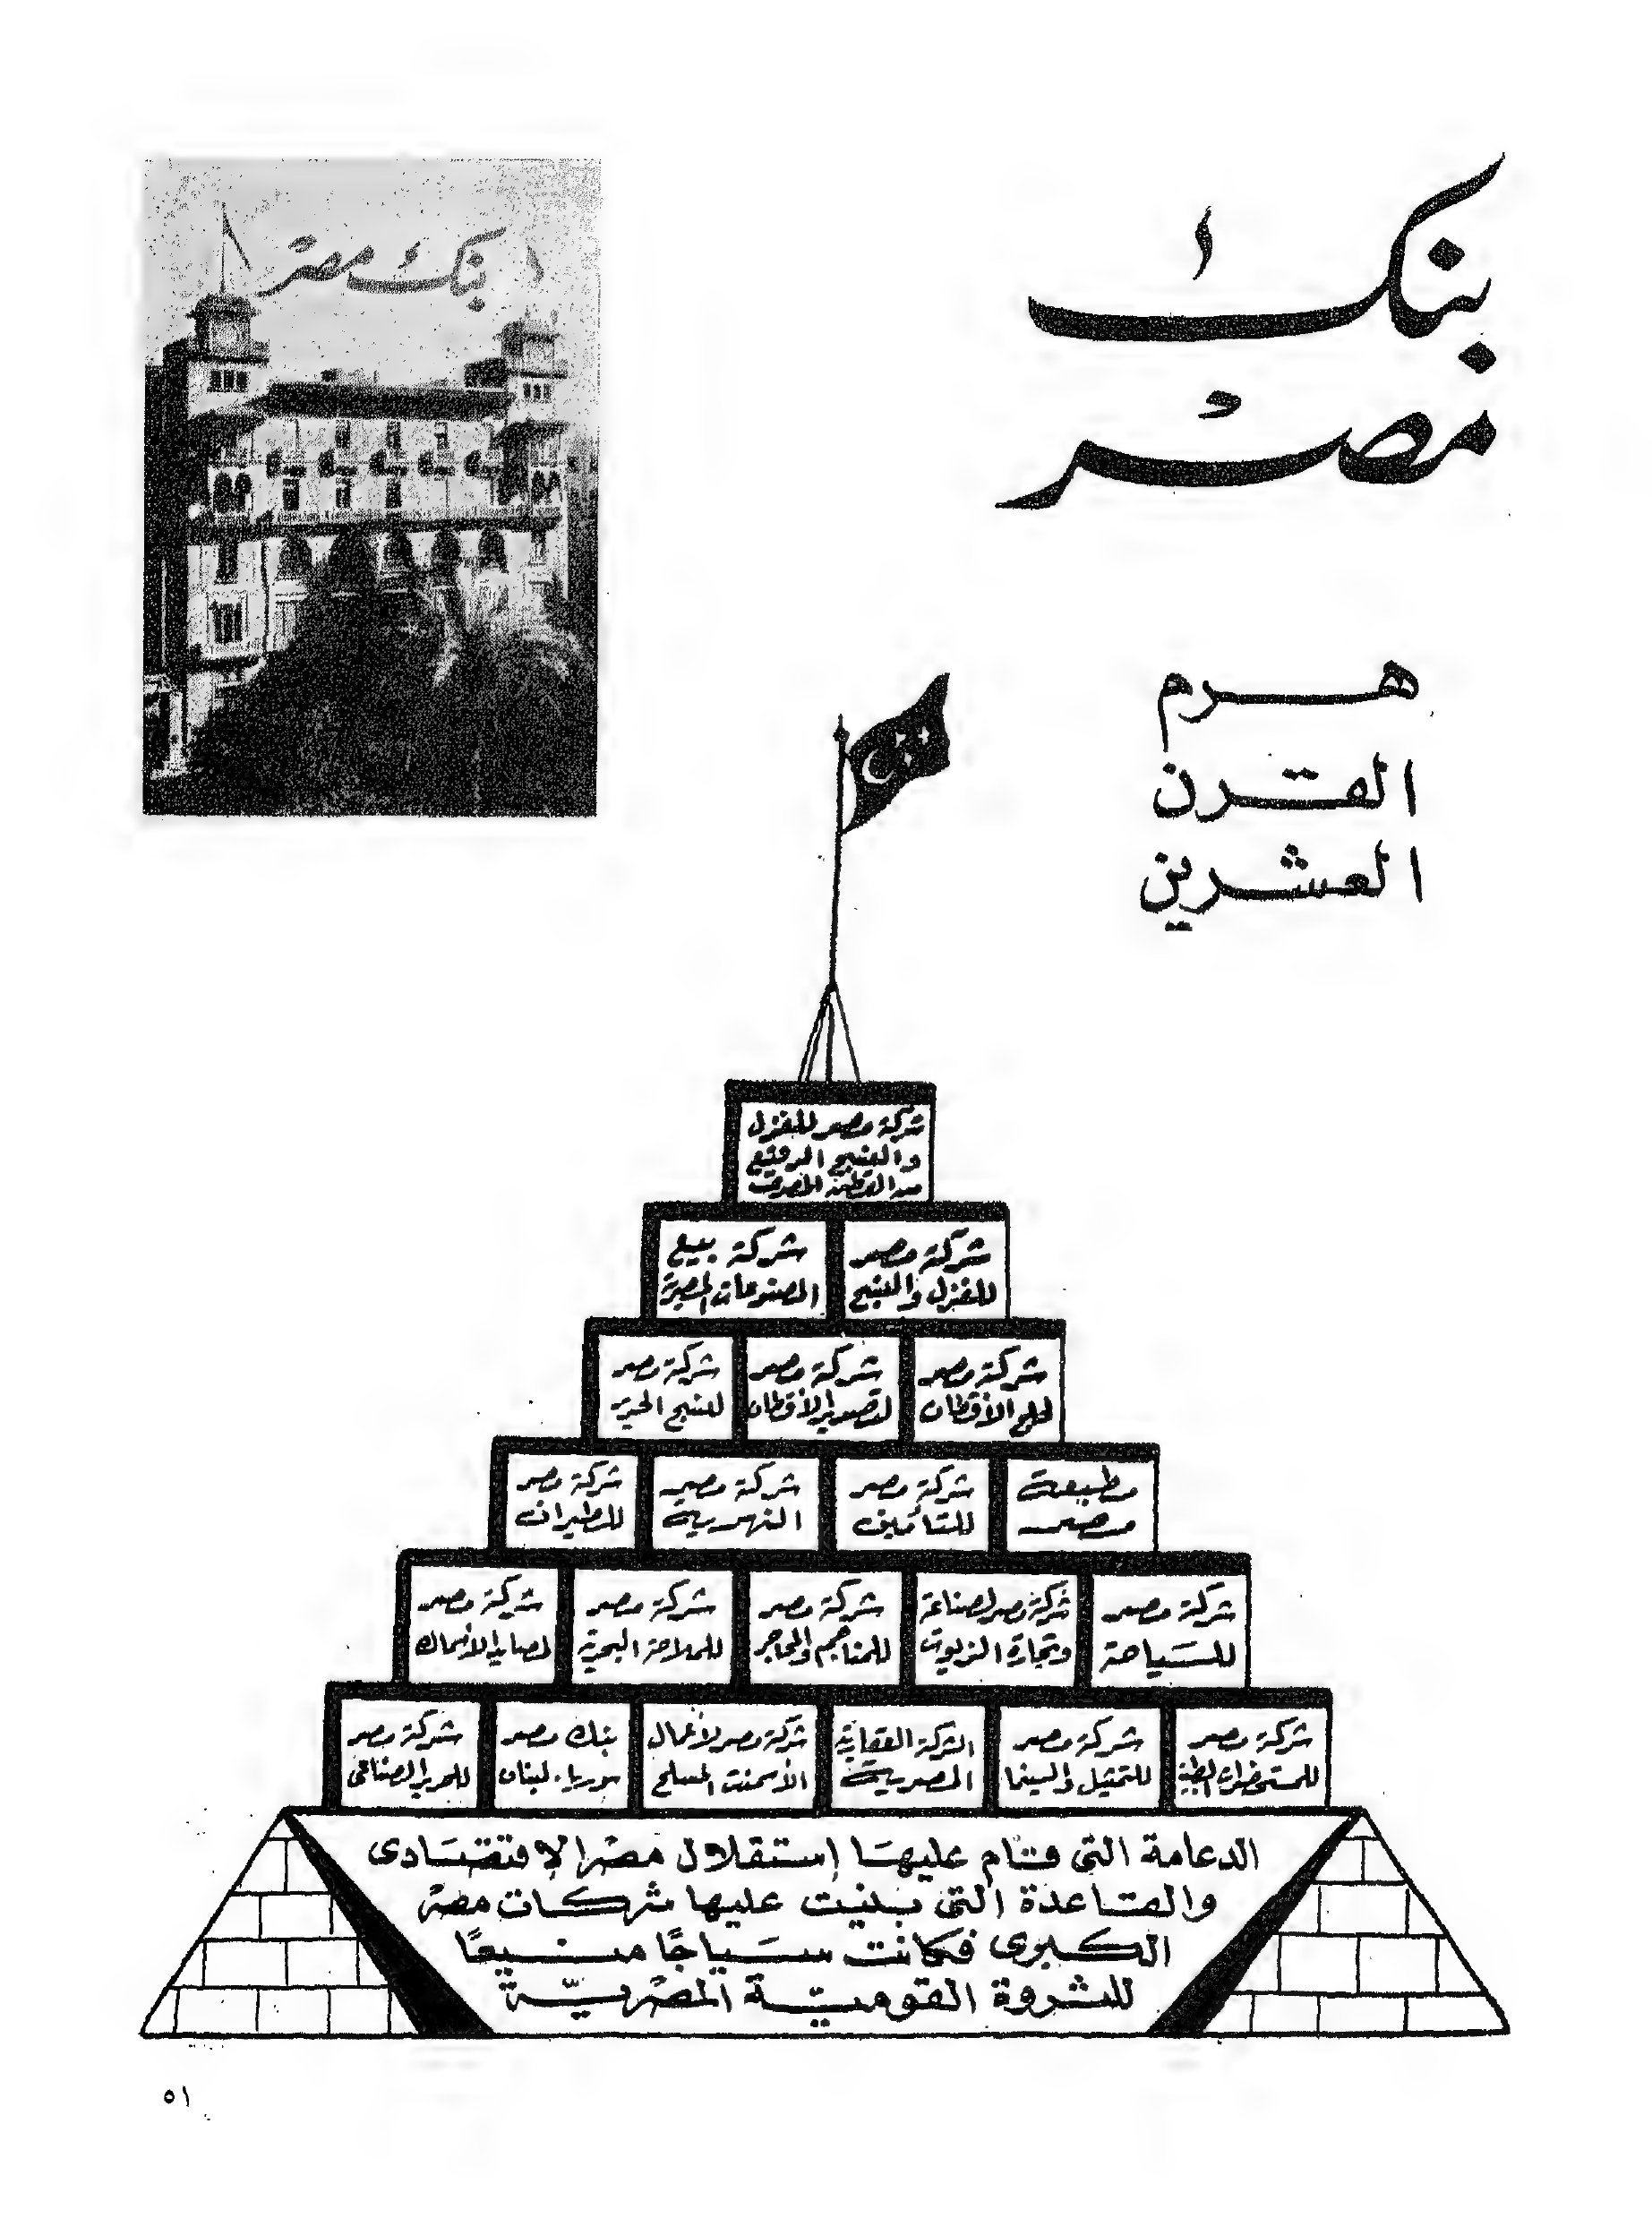 بنك
مصر
بنك مصر
هرم
القرن
العشرين
شركة مصر للغزل
والنسيج الرفيع
من القطن المصرى
شركة مصر
للغزل والنسيج
شركة بيع
المصنوعات المصرية
شركة مصر
لحلج الأقطان
شركة مصر
لتصدير الأقطان
شركة مصر
لنسج الحرير
مطبعة
مصر
شركة مصر
للتأمين
شركة مصر
النهرية
شركة مصر
للطيران
شركة مصر
للسياحة
شركة مصر لصناعة
وتجارة الزيوت
شركة مصر
للمناجم والمحاجر
شركة مصر
للملاحة البحرية
شركة مصر
لمصايد الأسماك
شركة مصر
للمستحضرات الطبية
شركة مصر
للتمثيل والسينما
الشركة العقارية
المصرية
شركة مصر لأعمال
الأسمنت المسلح
بنك مصر
سوريا. لبنان
شركة مصر
للحرير الصناعى
الدعامة التى قام عليها إستقلال مصر الإقتصادى
والقاعدة التى بنيت عليها شركات مصر
الكبرى فكانت سياجًا منيعًا
للثروة القومية المصرية
٥١